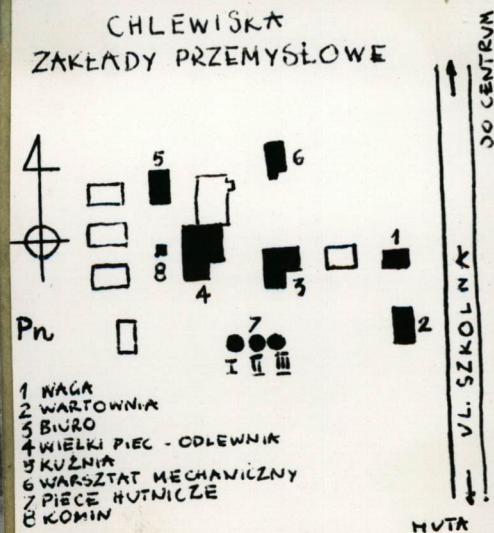 CHLEWISKA
ZAKŁADY PRZEMYSŁOWE
DO CENTRUM
5
6
1
8
4
3
2
Pn
7
I II III
UL. SZKOLNA
1 WAGA
2 WARTOWNIA
3 BIURO
4 WIELKI PIEC - ODLEWNIA
5 KUŹNIA
6 WARSZTAT MECHANICZNY
7 PIECE HUTNICZE
8 KOMIN
HUTA